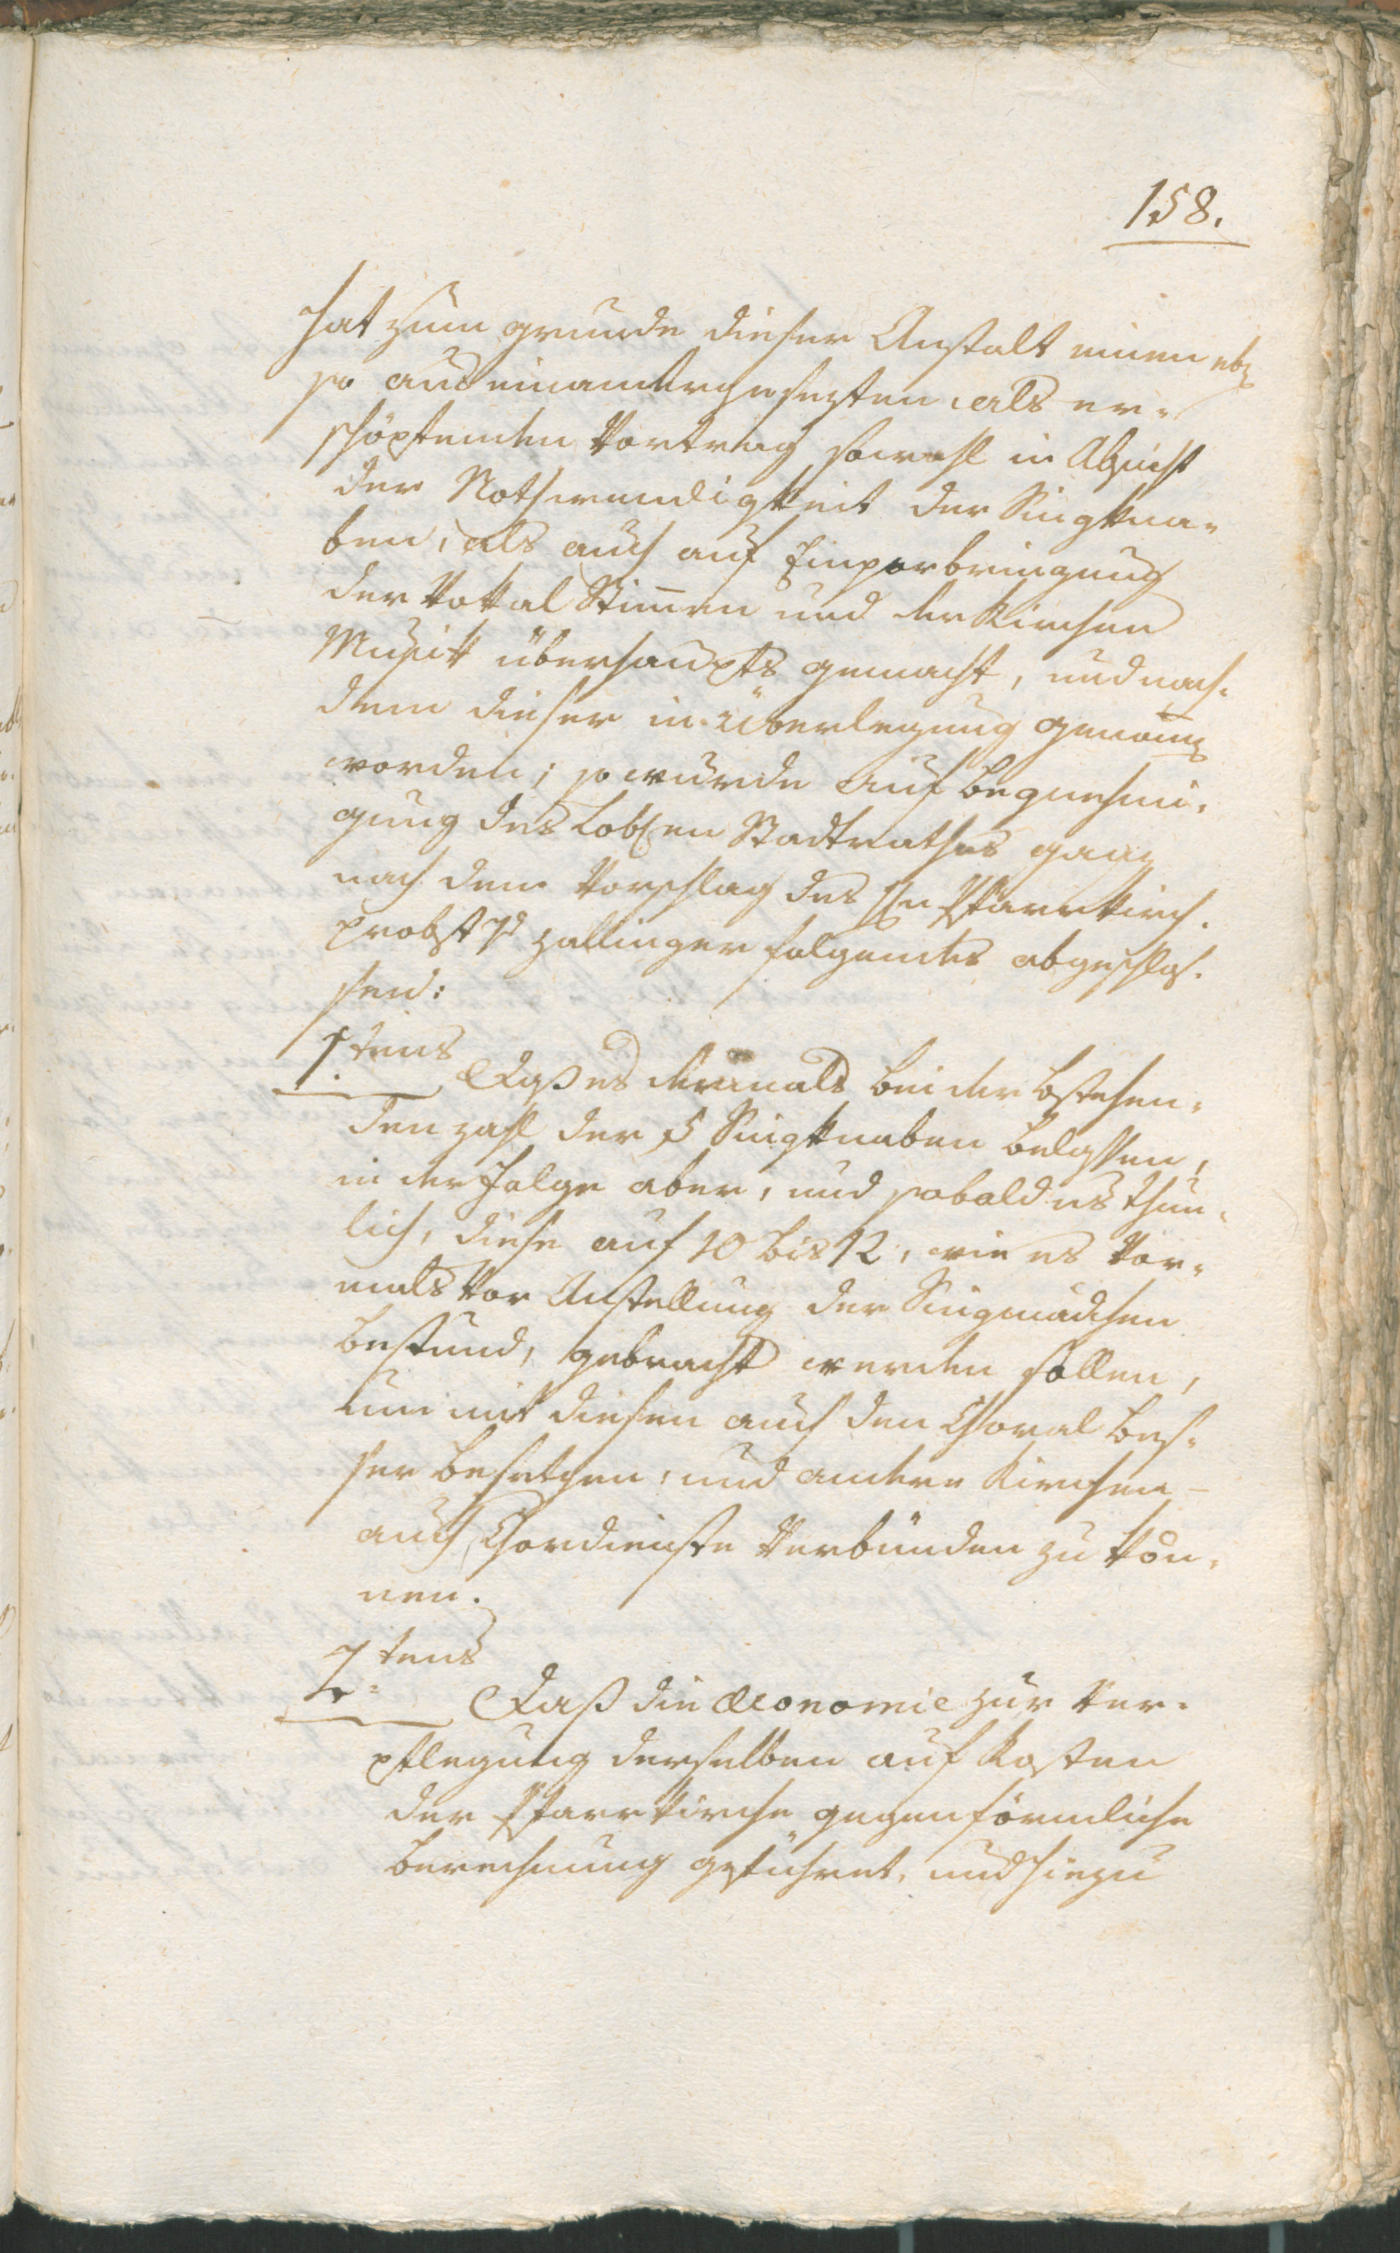 158.
hat zum grunde dieser Anstalt einen eb
so auseinandergesezten, als er-
schöpfenden Vortrag sowohl in Absicht
der Nothwendigkeit der Singkna-
ben, als auch auf Emporbringung
der Vokal Stimen und der Kirchen
Musik überhaupts gemacht, und nach-
dem dieser in Überlegung genom̄en
worden; so wurde auf Begnehmi-
gung des Lobl:en Stadtrathes ganz
nach dem Vorschlag des H:n Pfarrkirch-
probst v: Zallinger folgendes abgeschlos-
sen:
1.tens
Daß es dermals bei der bestehen-
den zahl der 5 Singknaben belassen,
in der Folge aber, und sobald es thun-
lich, diese auf 10 bis 12, wie es vor-
mals vor Anstellung der Singmädchen
bestund, gebracht werden sollen,
um mit diesen auch den Choral bes-
ser besetzen, und andere Kirchen-
auch Chordienste verbünden zu kön-
nen.
2.tens
Daß die Œconomie zur Ver-
pflegung derselben auf Kosten
der Pfarrkirche gegen förmliche
berechnung geführet, und hiezu